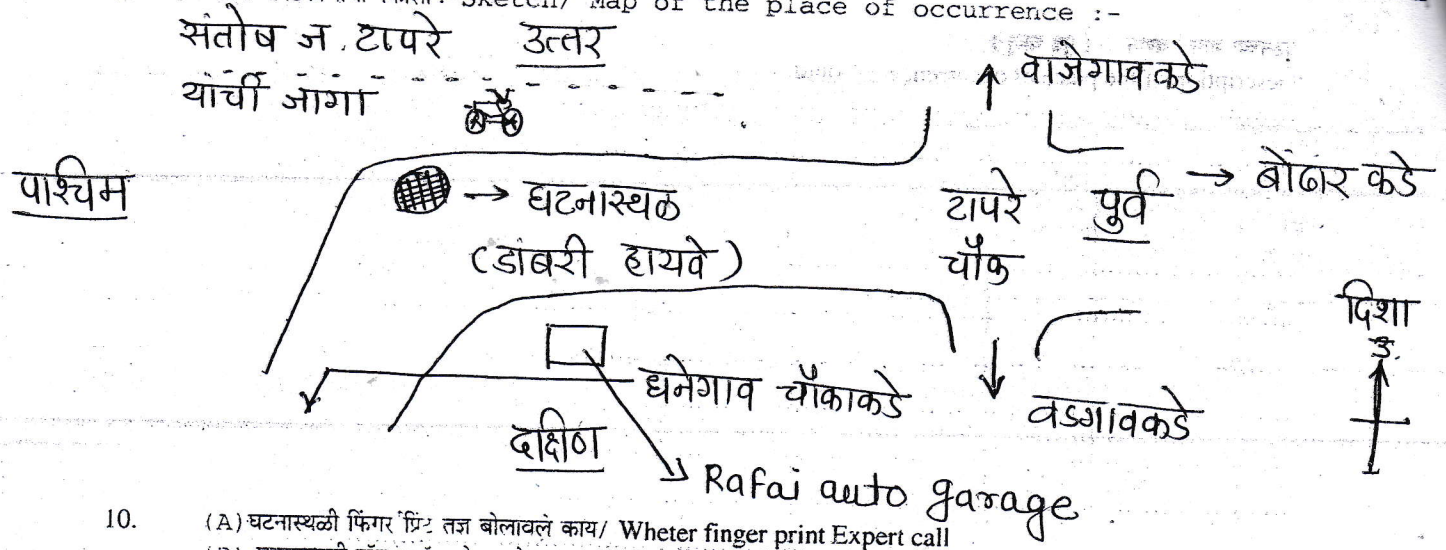 Sketch/ Map of the place of occurrence :-
संतोष ज. टापरे
यांची जागा
उत्तर
वाजेगाव कडे
पाश्चिम
घटनास्थळ
(डांबरी हायवे)
टापरे
चौक
पुर्व
बोंढार कडे
दिशा
उ.
धनेगाव चौकाकडे
वडगावकडे
दक्षिण
Rafai auto garage
10. (A) घटनास्थळी फिंगर प्रिंट तज्ञ बोलावलं काय/ Wheter finger print Expert call